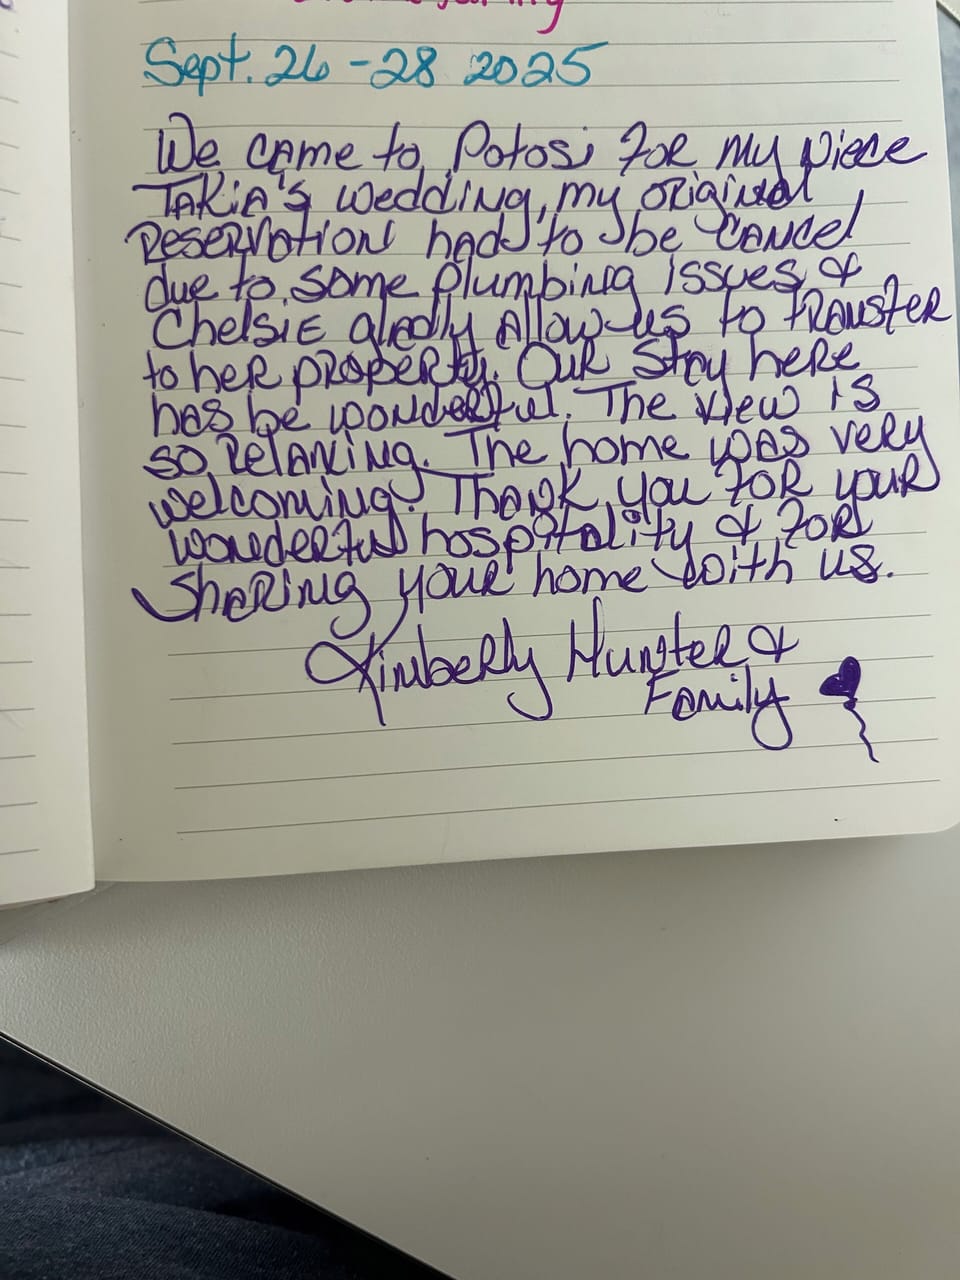 Sept. 26 - 28 2025
We came to Potosi for my Niece
Takia's wedding, my original
Reservation had to be cancel
due to some plumbing issues &
Chelsie gladly allow us to transfer
to her property. Our stay here
has be wonderful. The view is
so relaxing. The home was very
welcoming. Thank you for your
wonderful hospitality & for
sharing your home with us.
Kimberly Hunter &
Family